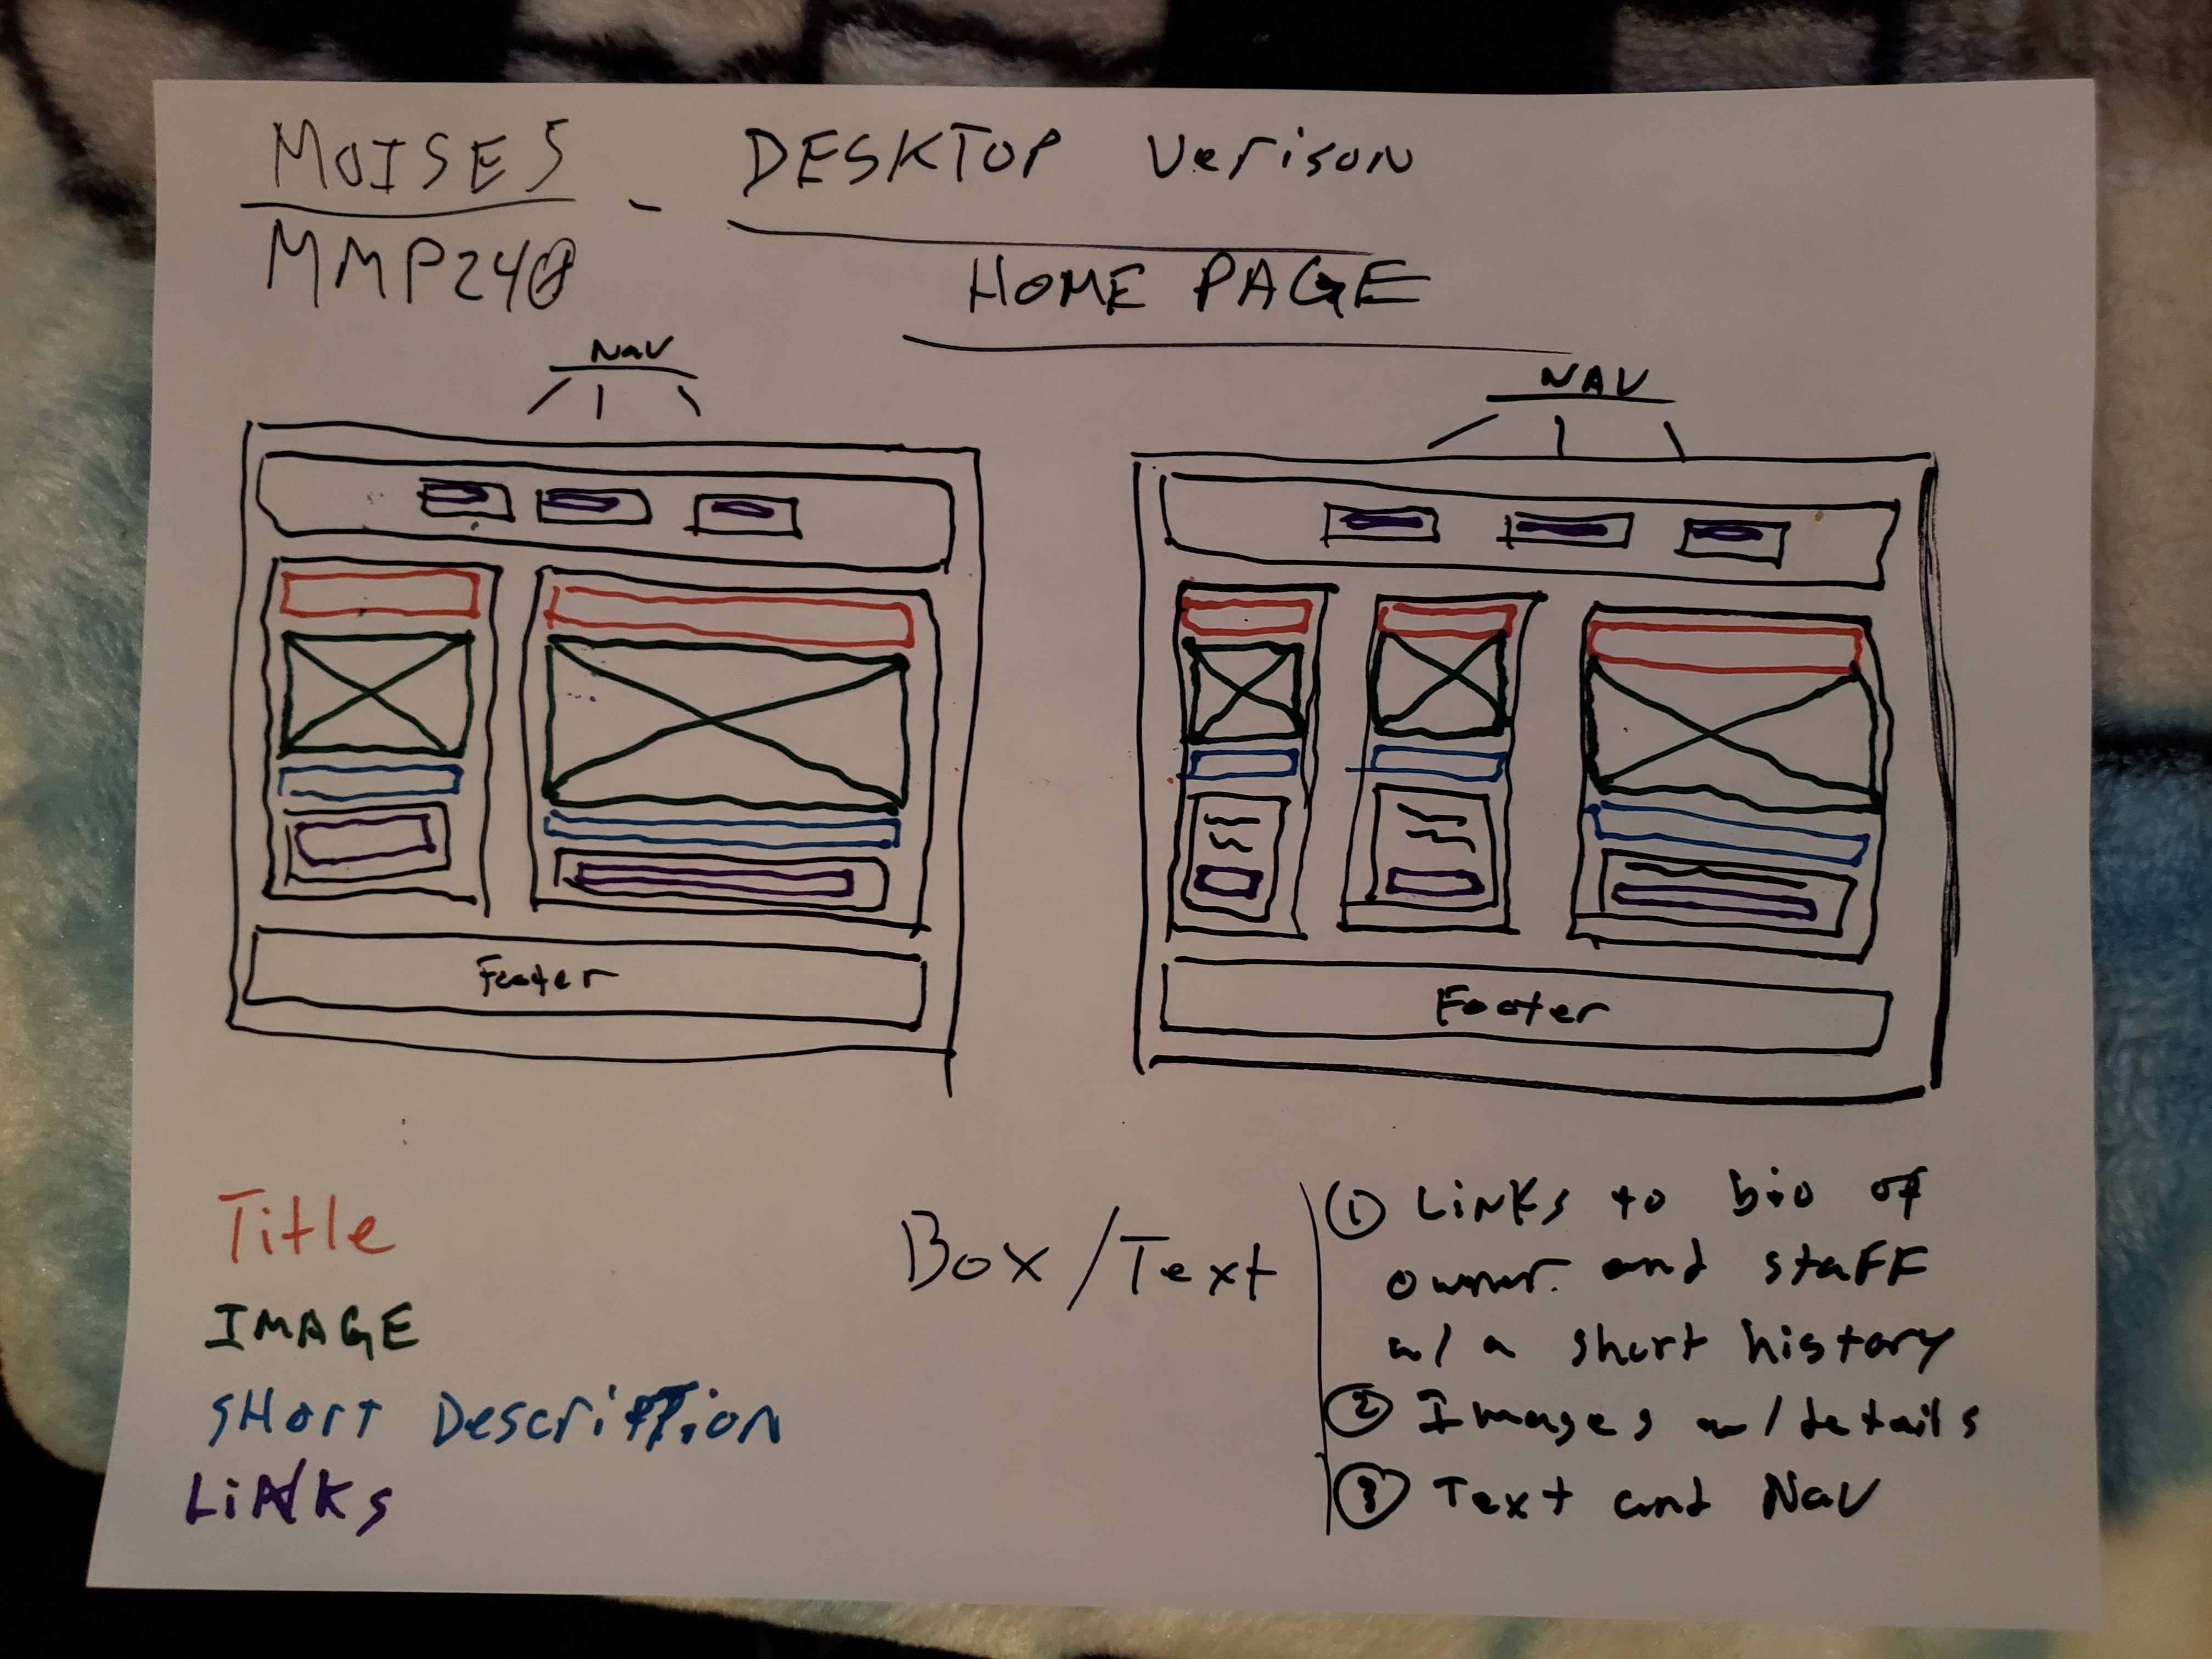 MOISES - DESKTOP Verison
MMP240
HOME PAGE
NAV
NAV
Footer
Footer
Title
IMAGE
SHORT DESCRIPTION
LINKS
Box/Text
① LINKS to bio of
owner. and staFF
w/ a short history
② Images w/details
③ Text and NaV